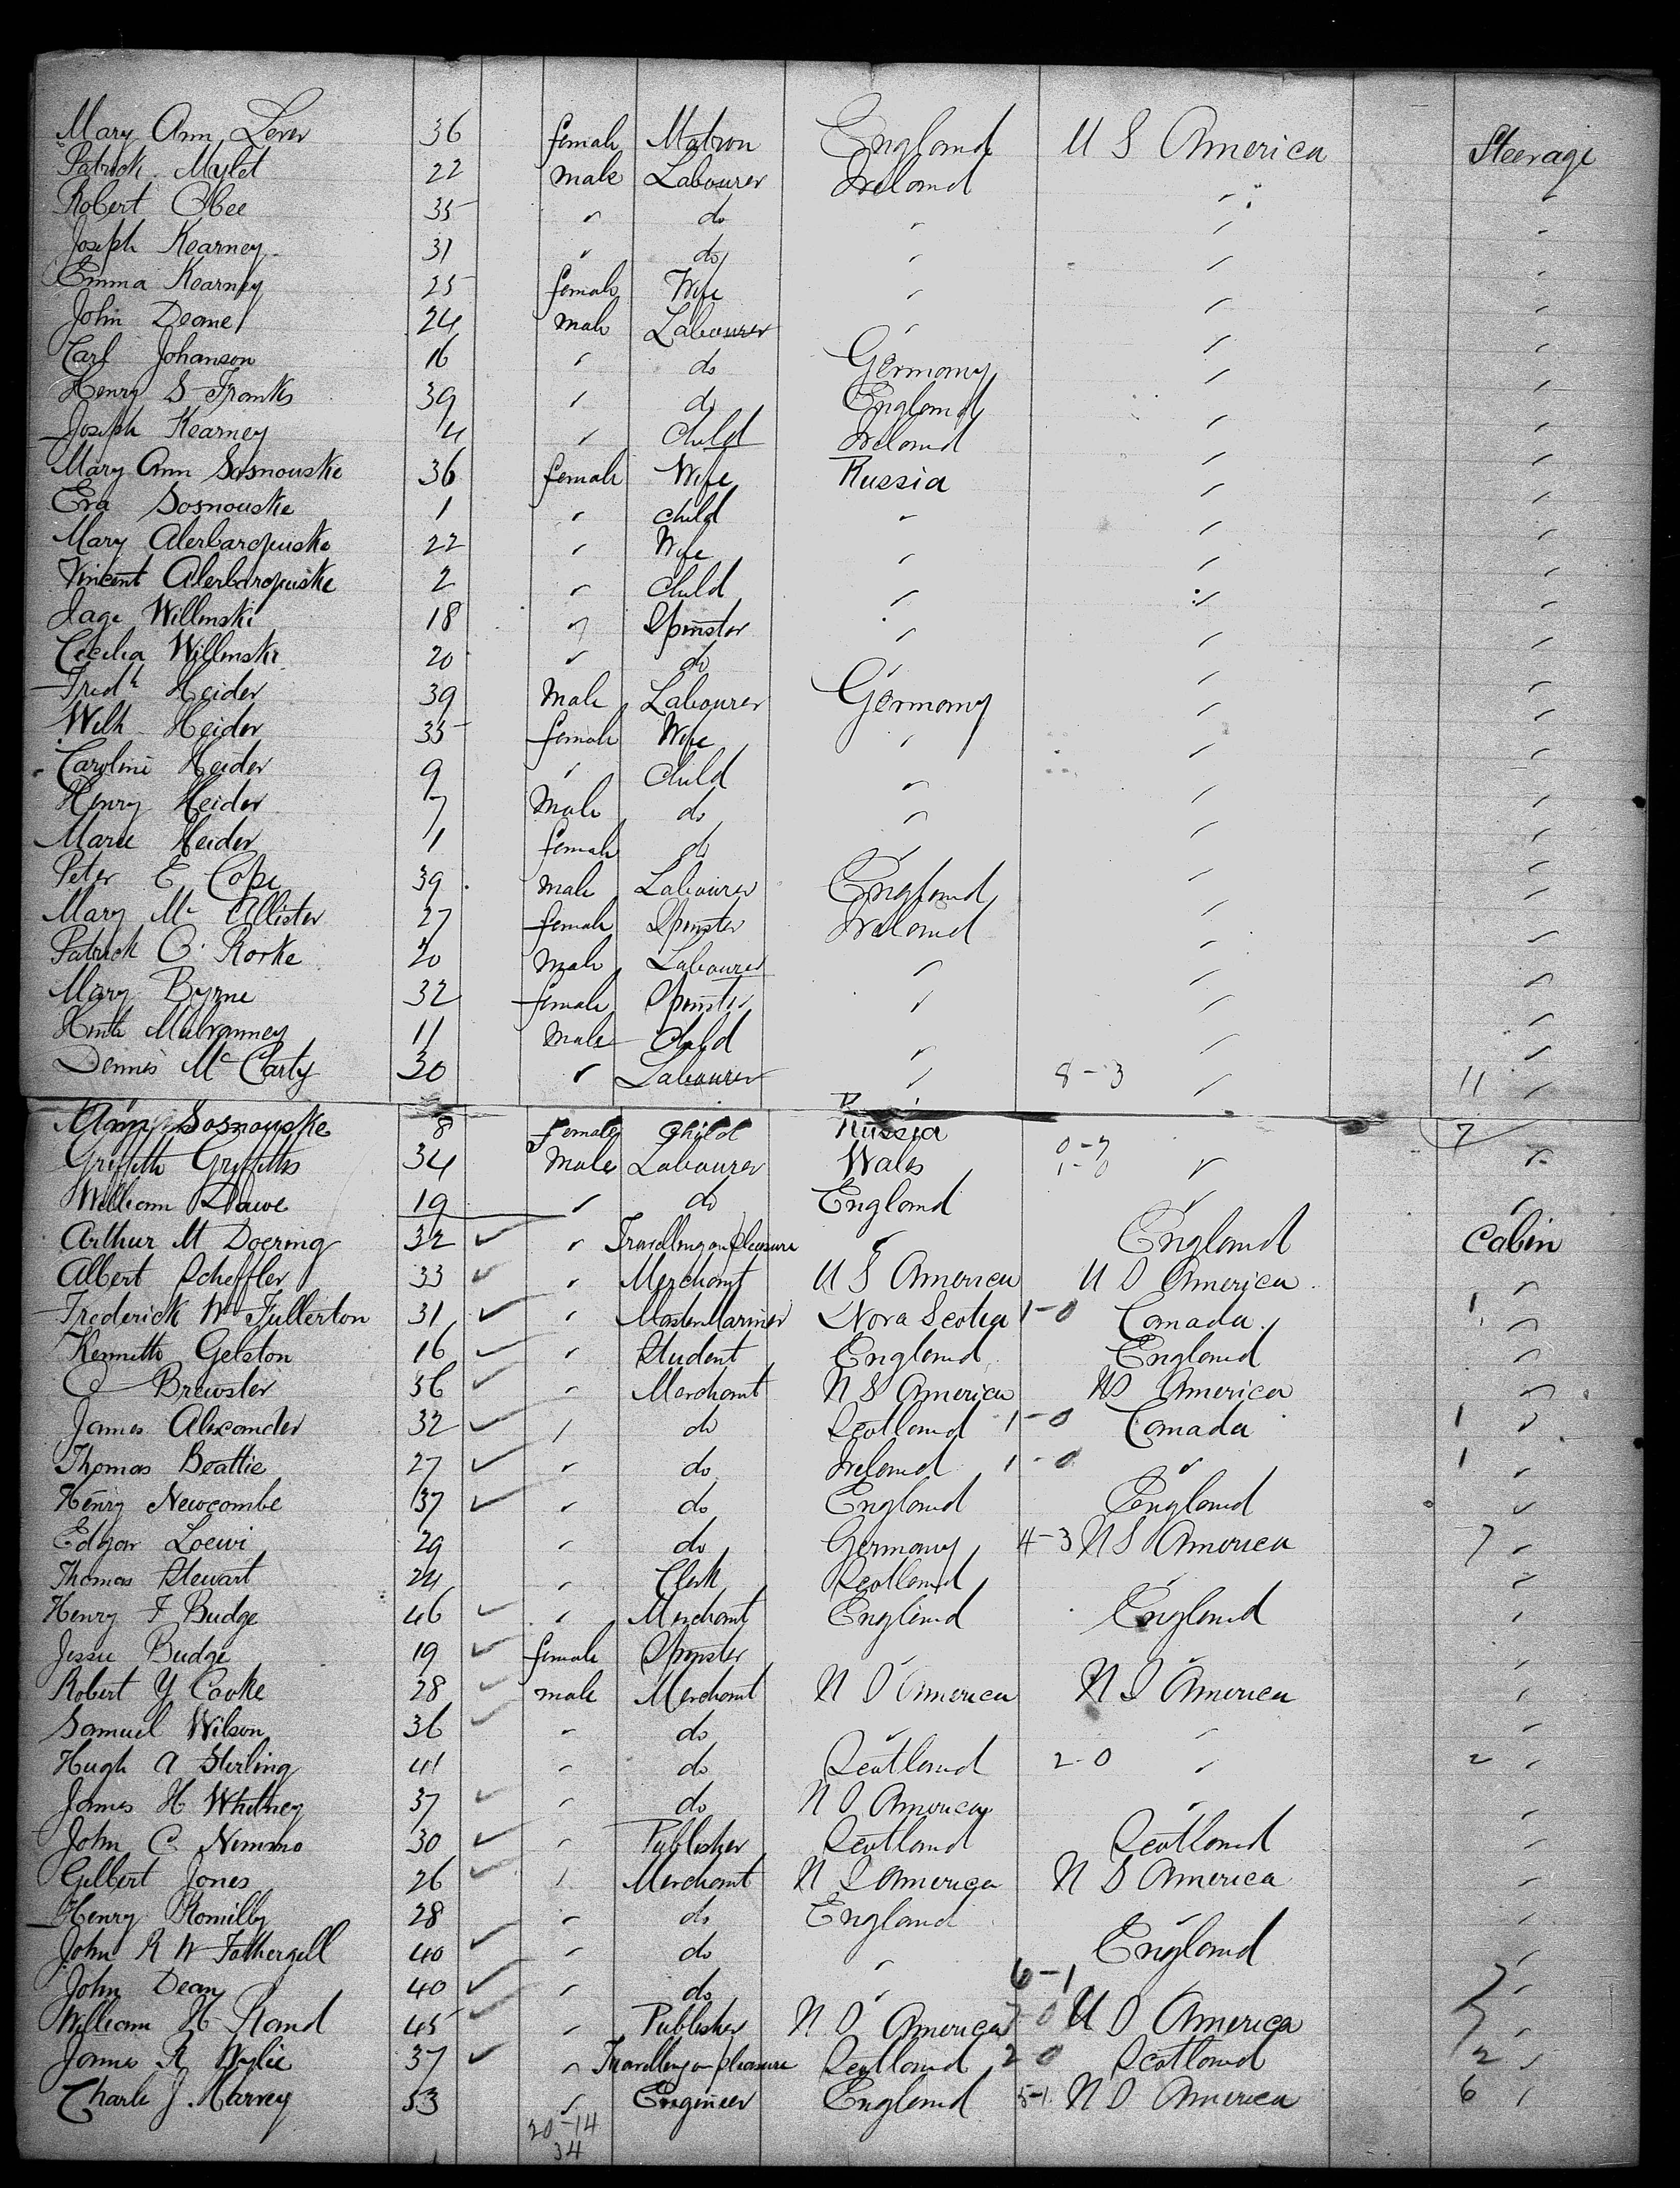 Mary Ann Lever 36 female Matron England U S America Steerage
Patrick Mylet 22 male Labourer Ireland " "
Robert Obee 35 " do " " "
Joseph Kearney 31 " do " " "
Emma Kearney 25 female Wife " " "
John Deane 24 male Labourer " " "
Carl Johanson 16 " do Germany " "
Henry S Franks 39 " do England " "
Joseph Kearney 4 " Child Ireland " "
Mary Ann Sosnouske 36 female Wife Russia " "
Eva Sosnouske 1 " child " " "
Mary 22 " Wife " " "
Vincent 2 " Child " " "
Willenski 18 " Spinster " " "
Cecilia Willenski 20 " do " " "
Fredk Heider 39 Male Labourer Germany " "
Wilh Heider 35 female Wife " " "
Caroline Heider 9 " Child " " "
Henry Heider 7 Male do " " "
Marie Heider 1 female do " " "
Peter E Cope 39 male Labourer England " "
Mary Mc Allister 27 female Spinster Ireland " "
Patrick O'Rorke 20 male Labourer " " "
Mary Byrne 32 female Spinster " " "
Mulvanney 11 Male Child " " "
Dennis Mc Carty 30 " Labourer " 8-3 " 11 "
Sosnouske 8 female Child Russia 7
Griffith Griffiths 34 Male Labourer Wales 0-7 1-0 " "
William Dawe 19 " do England " "
Arthur M Doering 32 " Travelling on pleasure " England Cabin
Albert Scheffler 33 " Merchant U S America U S America "
Frederick W Fullerton 31 " Master Mariner Nova Scotia 1-0 Canada 1 "
Kenneth Gelston 16 " Student England England "
C Brewster 36 " Merchant U S America U S America "
James Alexander 32 " do Scotland 1-0 Canada 1 "
Thomas Beattie 27 " do Ireland 1-0 " 1 "
Henry Newcombe 37 " do England England "
Edgar Loewi 29 " do Germany 4-3 U S America 7 "
Thomas Stewart 24 " Clerk Scotland " "
Henry F Budge 46 " Merchant England England "
Jessie Budge 19 female Spinster " " "
Robert Y Cooke 28 male Merchant U S America U S America "
Samuel Wilson 36 " do " " "
Hugh A Stirling 41 " do Scotland 2-0 " 2 "
James H Whitney 37 " do U S America " "
John C Nimmo 30 " Publisher Scotland Scotland "
Gilbert Jones 26 " Merchant U S America U S America "
Henry Romilly 28 " do England " "
John R W Fothergill 40 " do " England "
John Dean 40 " do " 6-1 " 7 "
William H Rand 45 " Publisher U S America 7-0 U S America 7 "
James R Wylie 37 " Travelling on pleasure Scotland 2-0 Scotland 2 "
Charle J. Harvey 53 " Engineer England 5-1 U S America 6 "
20-14
34